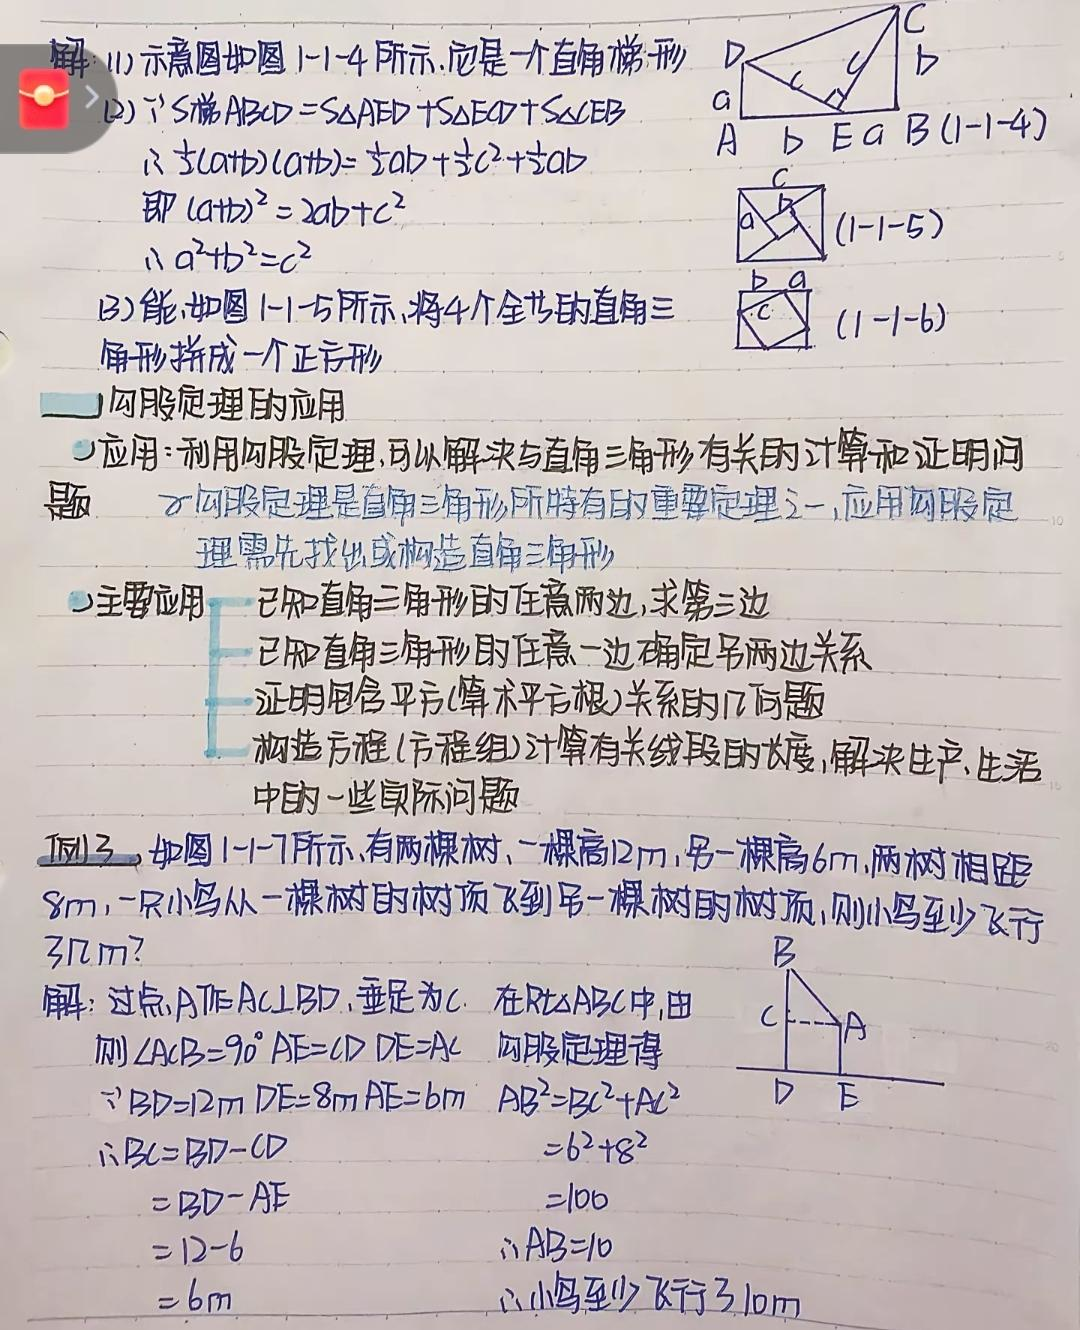 解:(1)示意图如图1-1-4所示.它是一个直角梯形
(2)∵S梯ABCD=S△AED+S△ECD+S△CEB
∴½(a+b)(a+b)=½ab+½c²+½ab
即(a+b)²=2ab+c²
∴a²+b²=c²
(3)能,如图1-1-5所示,将4个全等的直角三
角形拼成一个正方形
D C
c c b
a
A b E a B (1-1-4)
c
a b (1-1-5)
b a
c (1-1-6)
勾股定理的应用
应用:利用勾股定理,可以解决与直角三角形有关的计算和证明问
题
勾股定理是直角三角形所特有的重要定理之一,应用勾股定
理需先找出或构造直角三角形
主要应用
已知直角三角形的任意两边,求第三边
已知直角三角形的任意一边确定另两边关系
证明包含平方(算术平方根)关系的几何问题
构造方程(方程组)计算有关线段的长度,解决生产、生活
中的一些实际问题
例3,如图1-1-7所示,有两棵树,一棵高12m,另一棵高6m,两树相距
8m,一只小鸟从一棵树的树顶飞到另一棵树的树顶,则小鸟至少飞行
了几m?
解:过点A作AC⊥BD,垂足为C.
则∠ACB=90° AE=CD DE=AC
∵BD=12m DE=8m AE=6m
∴BC=BD-CD
=BD-AE
=12-6
=6m
在Rt△ABC中,由
勾股定理得
AB²=BC²+AC²
=6²+8²
=100
∴AB=10
∴小鸟至少飞行了10m
B
C A
D E